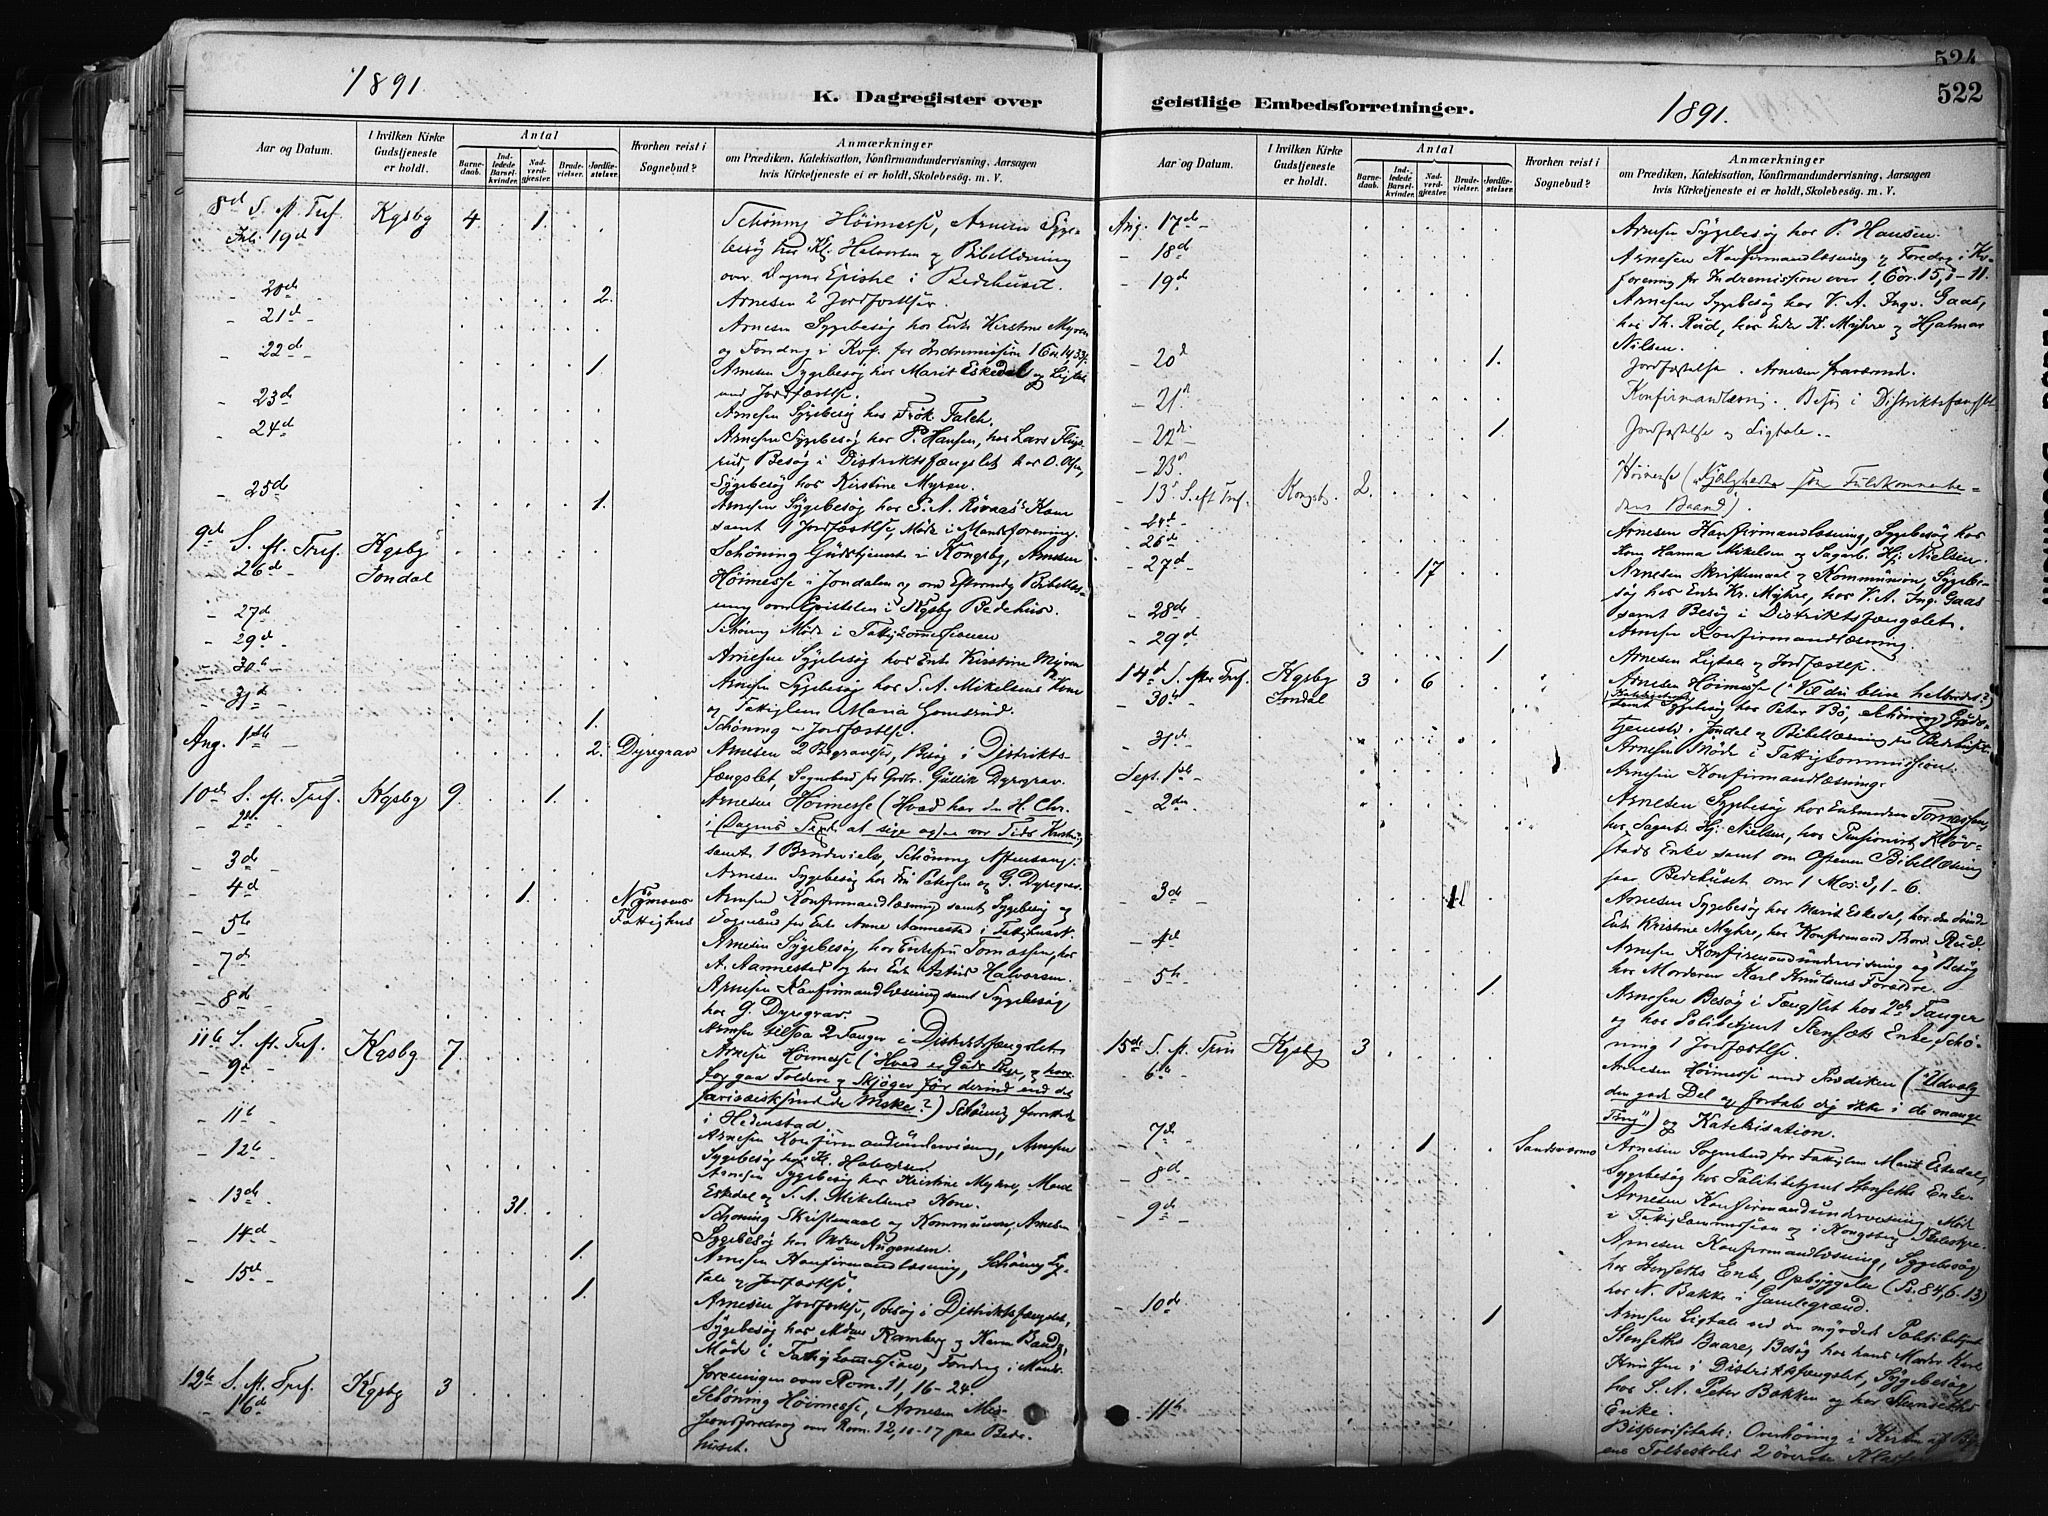 1891.
K. Dagregister over
Aar og Datum.
I hvilken Kirke Gudstjeneste er holdt.
Antal
Barnedaab.
Indledede Barselkvinder.
Nadverdgjester.
Brudevielser.
Jordfæstelser.
Hvorhen reist i Sognebud?
Anmærkninger
om Prædiken, Katekisation, Konfirmandundervisning, Aarsagen
hvis Kirketjeneste ei er holdt, Skolebesøg. m. V.
8de S. ft. Tref. Kgsbg 4 1 Schøning Høimesse, Arnesen Syge-
Juli 19d besøg hos Kl. Halvorsen og Bibellæsning
over Dagens Epistel i Bedehuset.
- 20de - 2. Arnesen 2 Jordfæstelser.
- 21d - Arnesen Sygebesøg hos Enke Kirstine Myren
- 22de - 1. Arnesen Sygebesøg hos Marit Eskedal og Ligtale
med Jordfæstelse.
- 23de Arnesen Sygebesøg hos Frøk. Falch.
- 24d Arnesen Sygebesøg hos P. Hansen, hos Lars
Besøg i Distriktsfængslet hos O. Olsen,
Sygebesøg hos Kirstine Myren.
- 25de 1. Arnesen Sygebesøg hos
samt 1 Jordfæstelse, Møde i Mandsforening.
9de S. ft. Tref. Kgsbg Schøning Gudstjeneste i Kongsbg, Arnesen
26de - Jondal Høimesse i Jondalen og om Eftermdg Bibellæs-
ning over Epistelen i Kgsbg Bedehus.
- 27de Schøning Møde i Fattigkommissionen
- 29de
- 30te Arnesen Sygebesøg hos Enke Kirstine Myren
- 31d Arnesen Sygebesøg hos S. A. Mikelsens Kone
og Fattiglem Maria Gomsrud.
1. Schøning Jordfæstelse.
Aug. 1ste - 2. Dyregrav Arnesen 2 Begravelser, Besøg i Distrikts-
fængslet, Sognebud for Gullik Dyrgrav.
10de S. ft. Tref. Kgsbg 9. 1. Arnesen Høimesse (Hvad har den H. Chr.
- 2de i Dagens Text at sige os om vor Tids
samt 1 Brudevielse, Schøning Aftensang.
- 3de Arnesen Sygebesøg hos Petersen og G. Dyregrav.
- 4d 1. Arnesen Konfirmandlæsning samt Sygebesøg og
- 5te Fattighus Sognebud for Enke Anne Aannestad i Fattighuset.
Arnesen Sygebesøg hos Enkefru Tomassen, hos
- 7de A. Aannestad og hos Enke Halvorsen.
- 8de Arnesen Konfirmandlæsning samt Sygebesøg
hos G. Dyregrav.
11te S. ft. Tref. Kgsbg 7. Arnesen Tilsaa 2 Fanger i Distriktsfængslet.
- 9de Arnesen Høimesse ("Hvad er Guds Rige, og hvor-
for gaa Toldere og Skjøger før derind end det
farisæiskfindede Meske?") Schøning forrettede
- 11te i Hedenstad.
- 12te Arnesen Konfirmandundervisning, Arnesen
Sygebesøg hos Kl. Halvorsen.
- 13de 31. Arnesen Sygebesøg hos Kristine Myhre, Marit
Eskedal og S. A. Mikelsens Kone.
- 14d Schøning Skriftemaal og Kommunion, Arnesen
Sygebesøg hos Augensen.
1. Arnesen Konfirmandlæsning, Schøning Lig-
- 15de tale og Jordfæstelse.
1. Arnesen Jordfæstelse, Besøg i Distriktsfængslet,
Sygebesøg hos Mdme Ramberg og Karen
Møde i Fattigkommission, Foredrag i Mands-
12te S. ft. Tref. Kgsbg 3 foreningen over Rom. 11, 16-24.
- 16de Schøning Høimesse, Arnesen Mis-
sionsforedrag over Rom. 12, 11-17 paa Bede-
huset.
524
522
geistlige Embedsforretninger.
1891.
Aar og Datum.
I hvilken Kirke Gudstjeneste er holdt.
Antal
Barnedaab.
Indledede Barselkvinder.
Nadverdgjester.
Brudevielser.
Jordfæstelser.
Hvorhen reist i Sognebud?
Anmærkninger
om Prædiken, Katekisation, Konfirmandundervisning, Aarsagen
hvis Kirketjeneste ei er holdt, Skolebesøg. m. V.
Aug. 17de - Arnesen Sygebesøg hos P. Hansen.
- 18de Arnesen Konfirmandlæsning og Foredrag i Kv.
- 19de forening for Indremission over 1. Cor. 15, 1-11.
Arnesen Sygebesøg hos V. A. Ingv. Gaas,
hos Th. Rud, hos Enke K. Myhre og Hjalmar
Nilsen.
- 20d 1. Jordfæstelse. Arnesen fraværende.
- 21de Konfirmandlæsning. Besøg i Distriktsfængslet
- 22de 1. Jordfæstelse og Ligtale.
- 23de
- 13de S. eft Tref. Kongsb. 2. Høimesse (Kjærligheden som Fuldkommenhe-
- 24de - dens Baand).
- 26de Arnesen Konfirmandlæsning, Sygebesøg hos
Kone Hanna Mikelsen og Sagarb. Hj. Nielsen.
- 27de 17 Arnesen Skriftemaal og Kommunion, Sygebe-
søg hos Enke Kr. Myhre, hos V. A. Ing. Gaas
- 28de samt Besøg i Distriktsfængslet.
- 29de Arnesen Konfirmandlæsning.
1 Arnesen Ligtale og Jordfæstelse.
14d S. efter Tref. Kgsbg 3 6 Arnesen Høimesse ("Vil du blive helbredet?")
- 30te Jondal Katekisation samt Sygebesøg hos Peter Bö, Schøning Guds-
tjeneste i Jondal og Bibellæsning paa Bedehuset.
- 31d - Arnesen Møde i Fattigkommission.
Sept. 1ste Arnesen Konfirmandlæsning.
- 2den Arnesen Sygebesøg hos Enkemadam Tomassen,
hos Sagarb. Hj. Nielsen, hos Pensionist Kløv-
stads Enke samt om Aftenen Bibellæsning
paa Bedehuset over 1 Mos. 3, 1-6.
- 3de - 1 Arnesen Sygebesøg hos Marit Eskedal, hos den døende
Enke Kristine Myhre, hos Konfirmand Thorv. Rud.
- 4de Arnesen Konfirmandundervisning og Besøg
hos Morderen Karl Knutsens Forældre.
- 5te 1. Arnesen Besøg i Fængslet hos 2de Fanger
og hos Politibetjent Stensæths Enke, Schø-
15de S. ft. Trin Kgsbg 3 ning 1 Jordfæstelse.
- 6te Arnesen Høimesse med Prædiken ("Udvælg
den gode Del og fortab dig ikke i de mange
Ting") og Katekisation.
- 7de - 1 Sandsværmo Arnesen Sognebud for Fattiglem Marit Eskedal,
- 8de Sygebesøg hos Politibetjent Stenseths Enke.
- 9de Arnesen Konfirmandundervisning, Møde
i Fattigkommission og i Kongsberg
Arnesen Konfirmandlæsning, Sygebesøg
hos Stenseths Enke, Opbyggelse (Ps. 84, 6-13)
hos N. Bakke i Gamlegrænd.
- 10de 1 Arnesen Ligtale ved den myrdet Politibetjent
Stenseths Baare, Besøg hos hans Morder Karl
Knutsen i Distriktsfængslet, Sygebesøg
- 11te hos S. A. Peter Bakken og hos Stenseths
Enke.
Bispevisitats: Overhøring i Kirken af By-
ens Folkeskoles 2 øverste Klasser